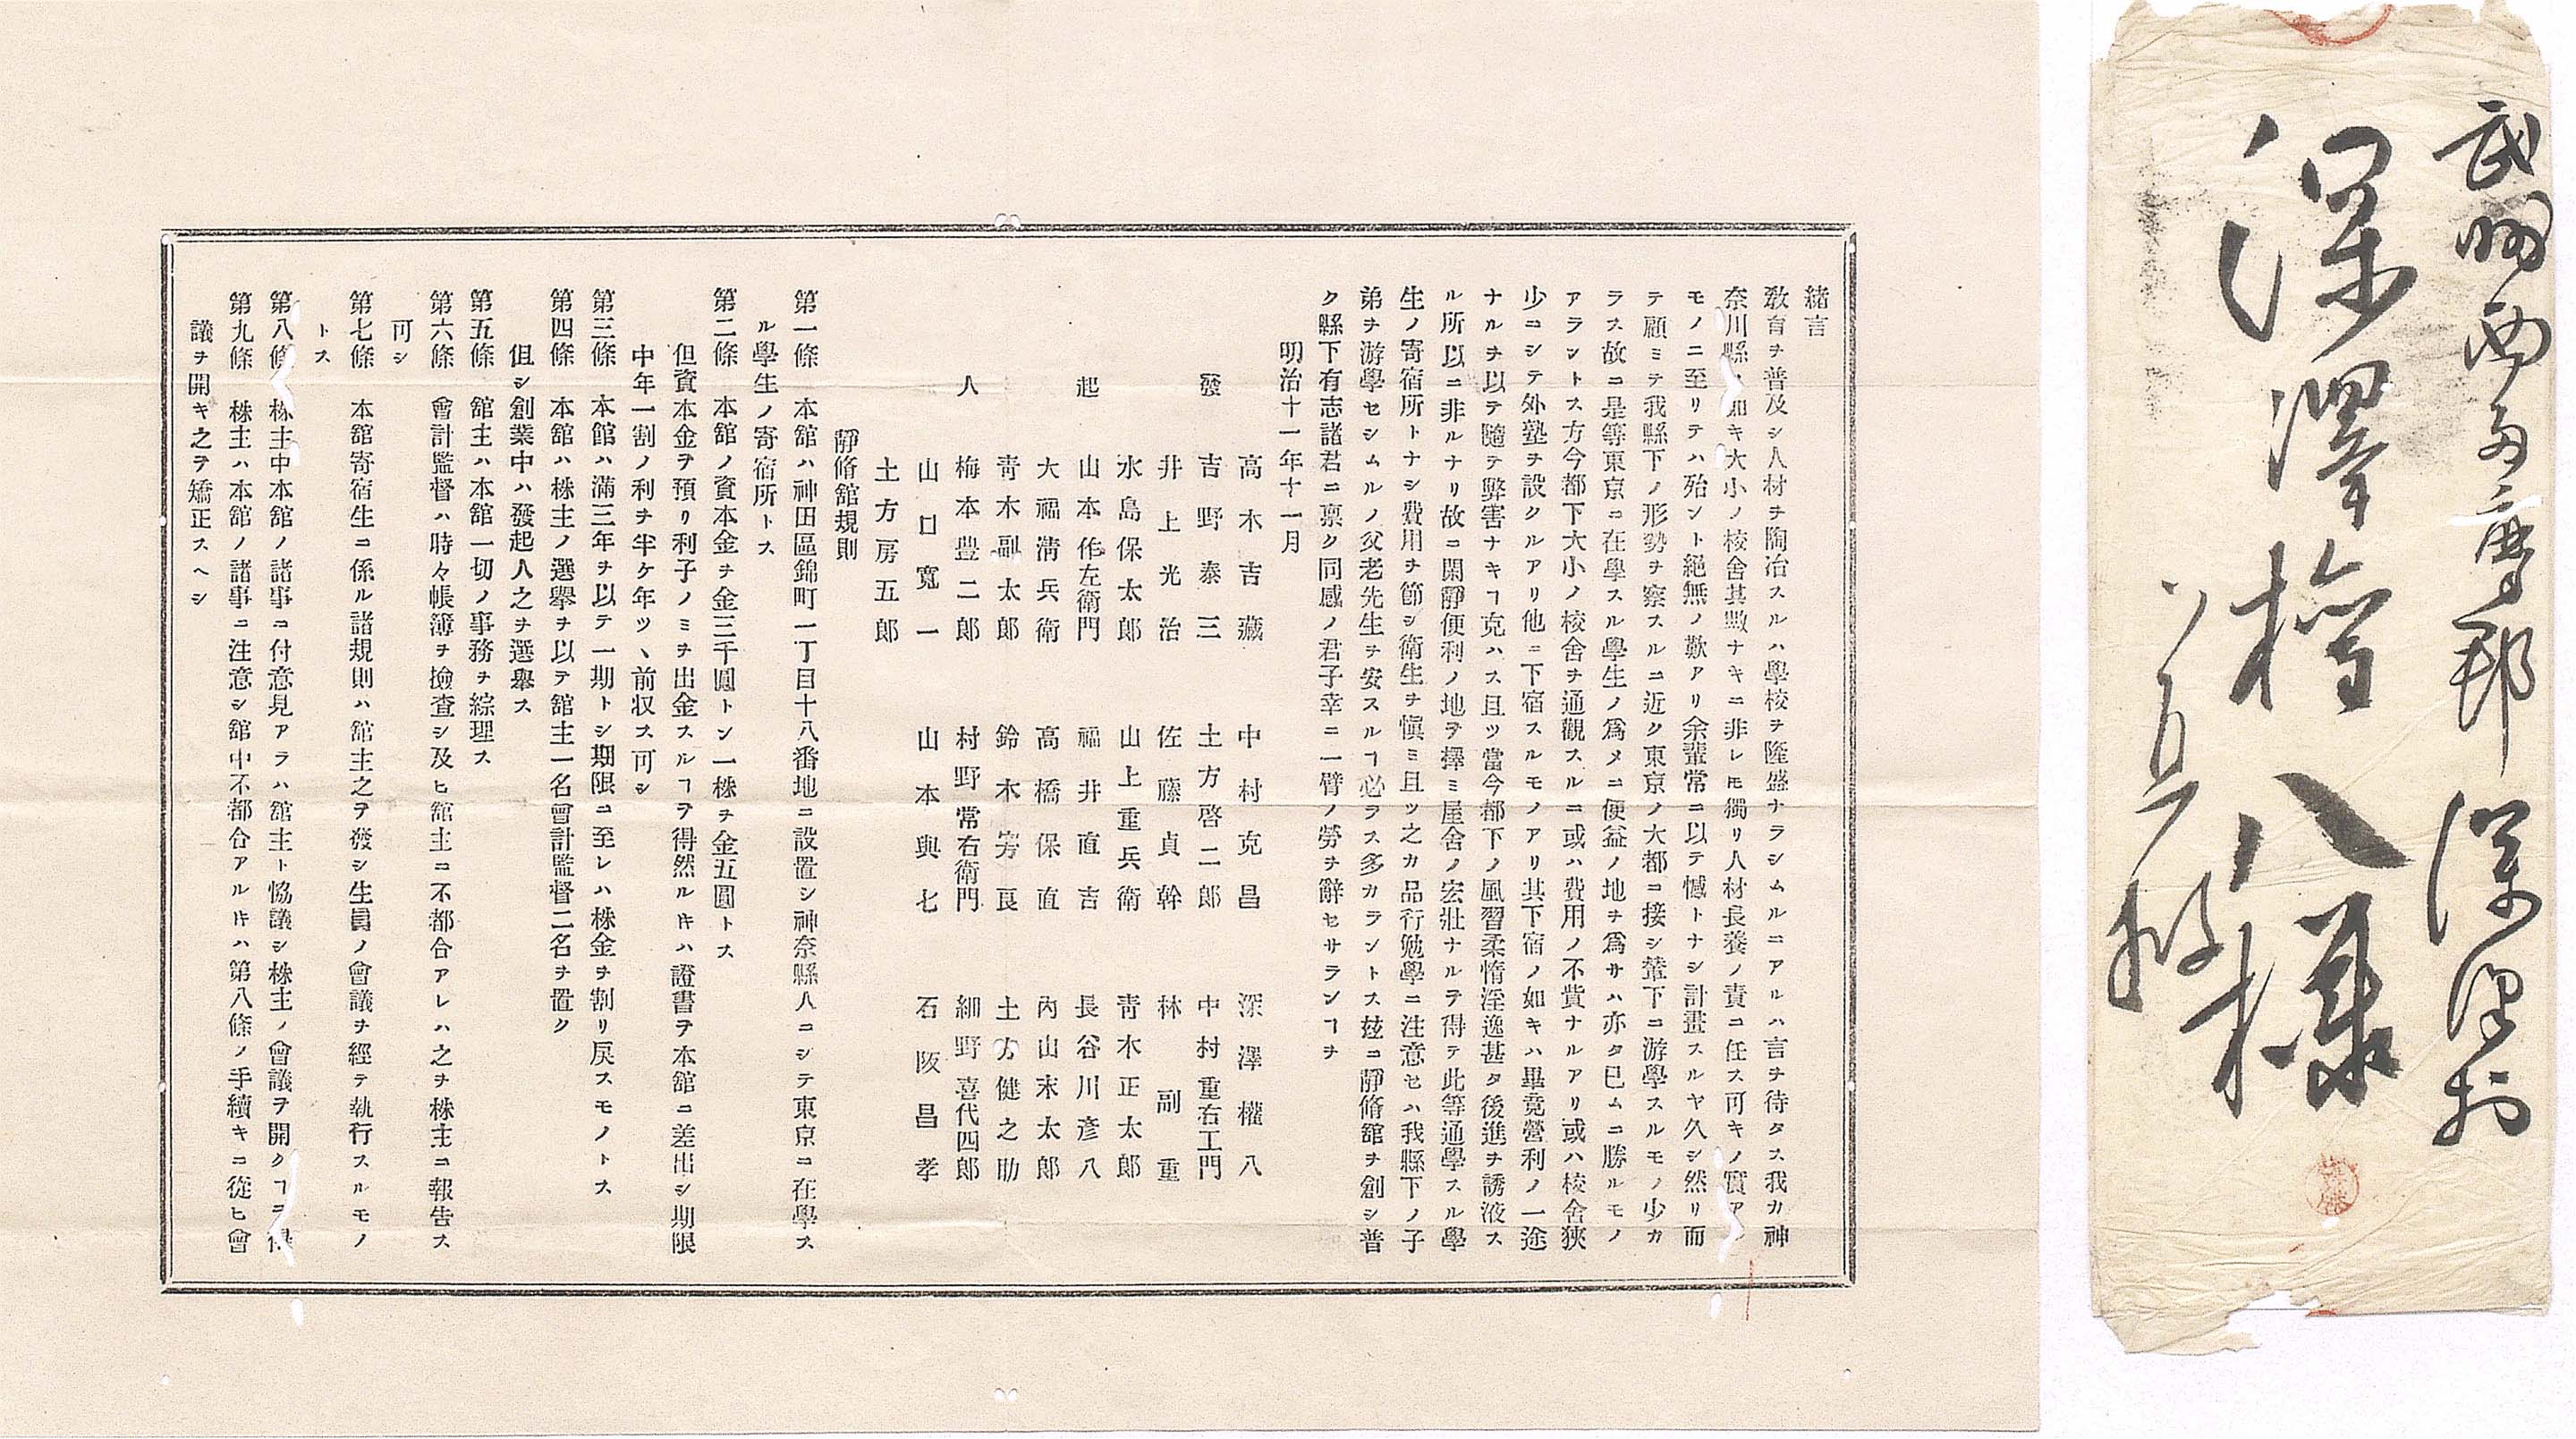 武州西多摩郡深澤村
深澤権八様
緒言
教育ヲ普及シ人材ヲ陶冶スルハ學校ヲ隆盛ナラシムルニアルハ言ヲ待タス我カ神
奈川縣ノ如キ大小ノ校舎其數ナキニ非レ𪜈獨リ人材長養ノ責ニ任ス可キノ實アル
モノニ至リテハ殆ント絕無ノ歎アリ余輩常ニ以テ憾トナシ計畫スルヤ久シ然リ而
テ顧ミテ我縣下ノ形勢ヲ察スルニ近ク東京ノ大都ニ接シ輦下ニ游學スルモノ少カ
ラス故ニ是等東京ニ在學スル學生ノ爲メニ便益ノ地ヲ爲サハ亦タ已ムニ勝ルモノ
アラントス方今都下大小ノ校舎ヲ通觀スルニ或ハ費用ノ不貲ナルアリ或ハ校舎狹
少ニシテ外塾ヲ設クルアリ他ニ下宿スルモノアリ其下宿ノ如キハ畢竟營利ノ一途
ナルヲ以テ隨テ弊害ナキヿ克ハス且ツ當今都下ノ風習柔惰淫逸甚タ後進ヲ誘液ス
ル所以ニ非ルナリ故ニ閑靜便利ノ地ヲ擇ミ屋舎ノ宏壯ナルヲ得テ此等通學スル學
生ノ寄宿所トナシ費用ヲ節シ衛生ヲ愼ミ且ツ之カ品行勉學ニ注意セハ我縣下ノ子
弟ヲ游學セシムルノ父老先生ヲ安スルヿ必ラス多カラントス玆ニ靜脩舘ヲ創シ普
ク縣下有志諸君ニ禀ク同感ノ君子幸ニ一臂ノ勞ヲ辭セサランヿヲ
明治十一年十一月
高木吉藏 中村克昌 深澤權八
發 吉野泰三 土方啓二郎 中村重右工門
井上光治 佐藤貞幹 林副重
水島保太郎 山上重兵衛 靑木正太郎
起 山本作左衛門 福井直吉 長谷川彦八
大福淸兵衛 高橋保直 內山末太郎
靑木副太郎 鈴木芳良 土方健之助
人 梅本豊二郎 村野常右衛門 細野喜代四郎
山口寬一 山本與七 石阪昌孝
土方房五郎
靜脩舘規則
第一條 本舘ハ神田區錦町一丁目十八番地ニ設置シ神奈縣人ニシテ東京ニ在學ス
ル學生ノ寄宿所トス
第二條 本舘ノ資本金ヲ金三千圓トシ一株ヲ金五圓トス
但資本金ヲ預リ利子ノミヲ出金スルヿヲ得然ルキハ證書ヲ本舘ニ差出シ期限
中年一割ノ利ヲ半ケ年ツヽ前収ス可シ
第三條 本舘ハ滿三年ヲ以テ一期トシ期限ニ至レハ株金ヲ割リ戾スモノトス
第四條 本舘ハ株主ノ選擧ヲ以テ舘主一名會計監督二名ヲ置ク
但シ創業中ハ發起人之ヲ選擧ス
第五條 舘主ハ本舘一切ノ事務ヲ綜理ス
第六條 會計監督ハ時々帳簿ヲ撿査シ及ヒ舘主ニ不都合アレハ之ヲ株主ニ報告ス
可シ
第七條 本舘寄宿生ニ係ル諸規則ハ舘主之ヲ發シ生員ノ會議ヲ經テ執行スルモノ
トス
第八條 株主中本舘ノ諸事ニ付意見アラハ舘主ト恊議シ株主ノ會議ヲ開クヿヲ得
第九條 株主ハ本舘ノ諸事ニ注意シ舘中不都合アルキハ第八條ノ手續キニ從ヒ會
議ヲ開キ之ヲ矯正スヘシ